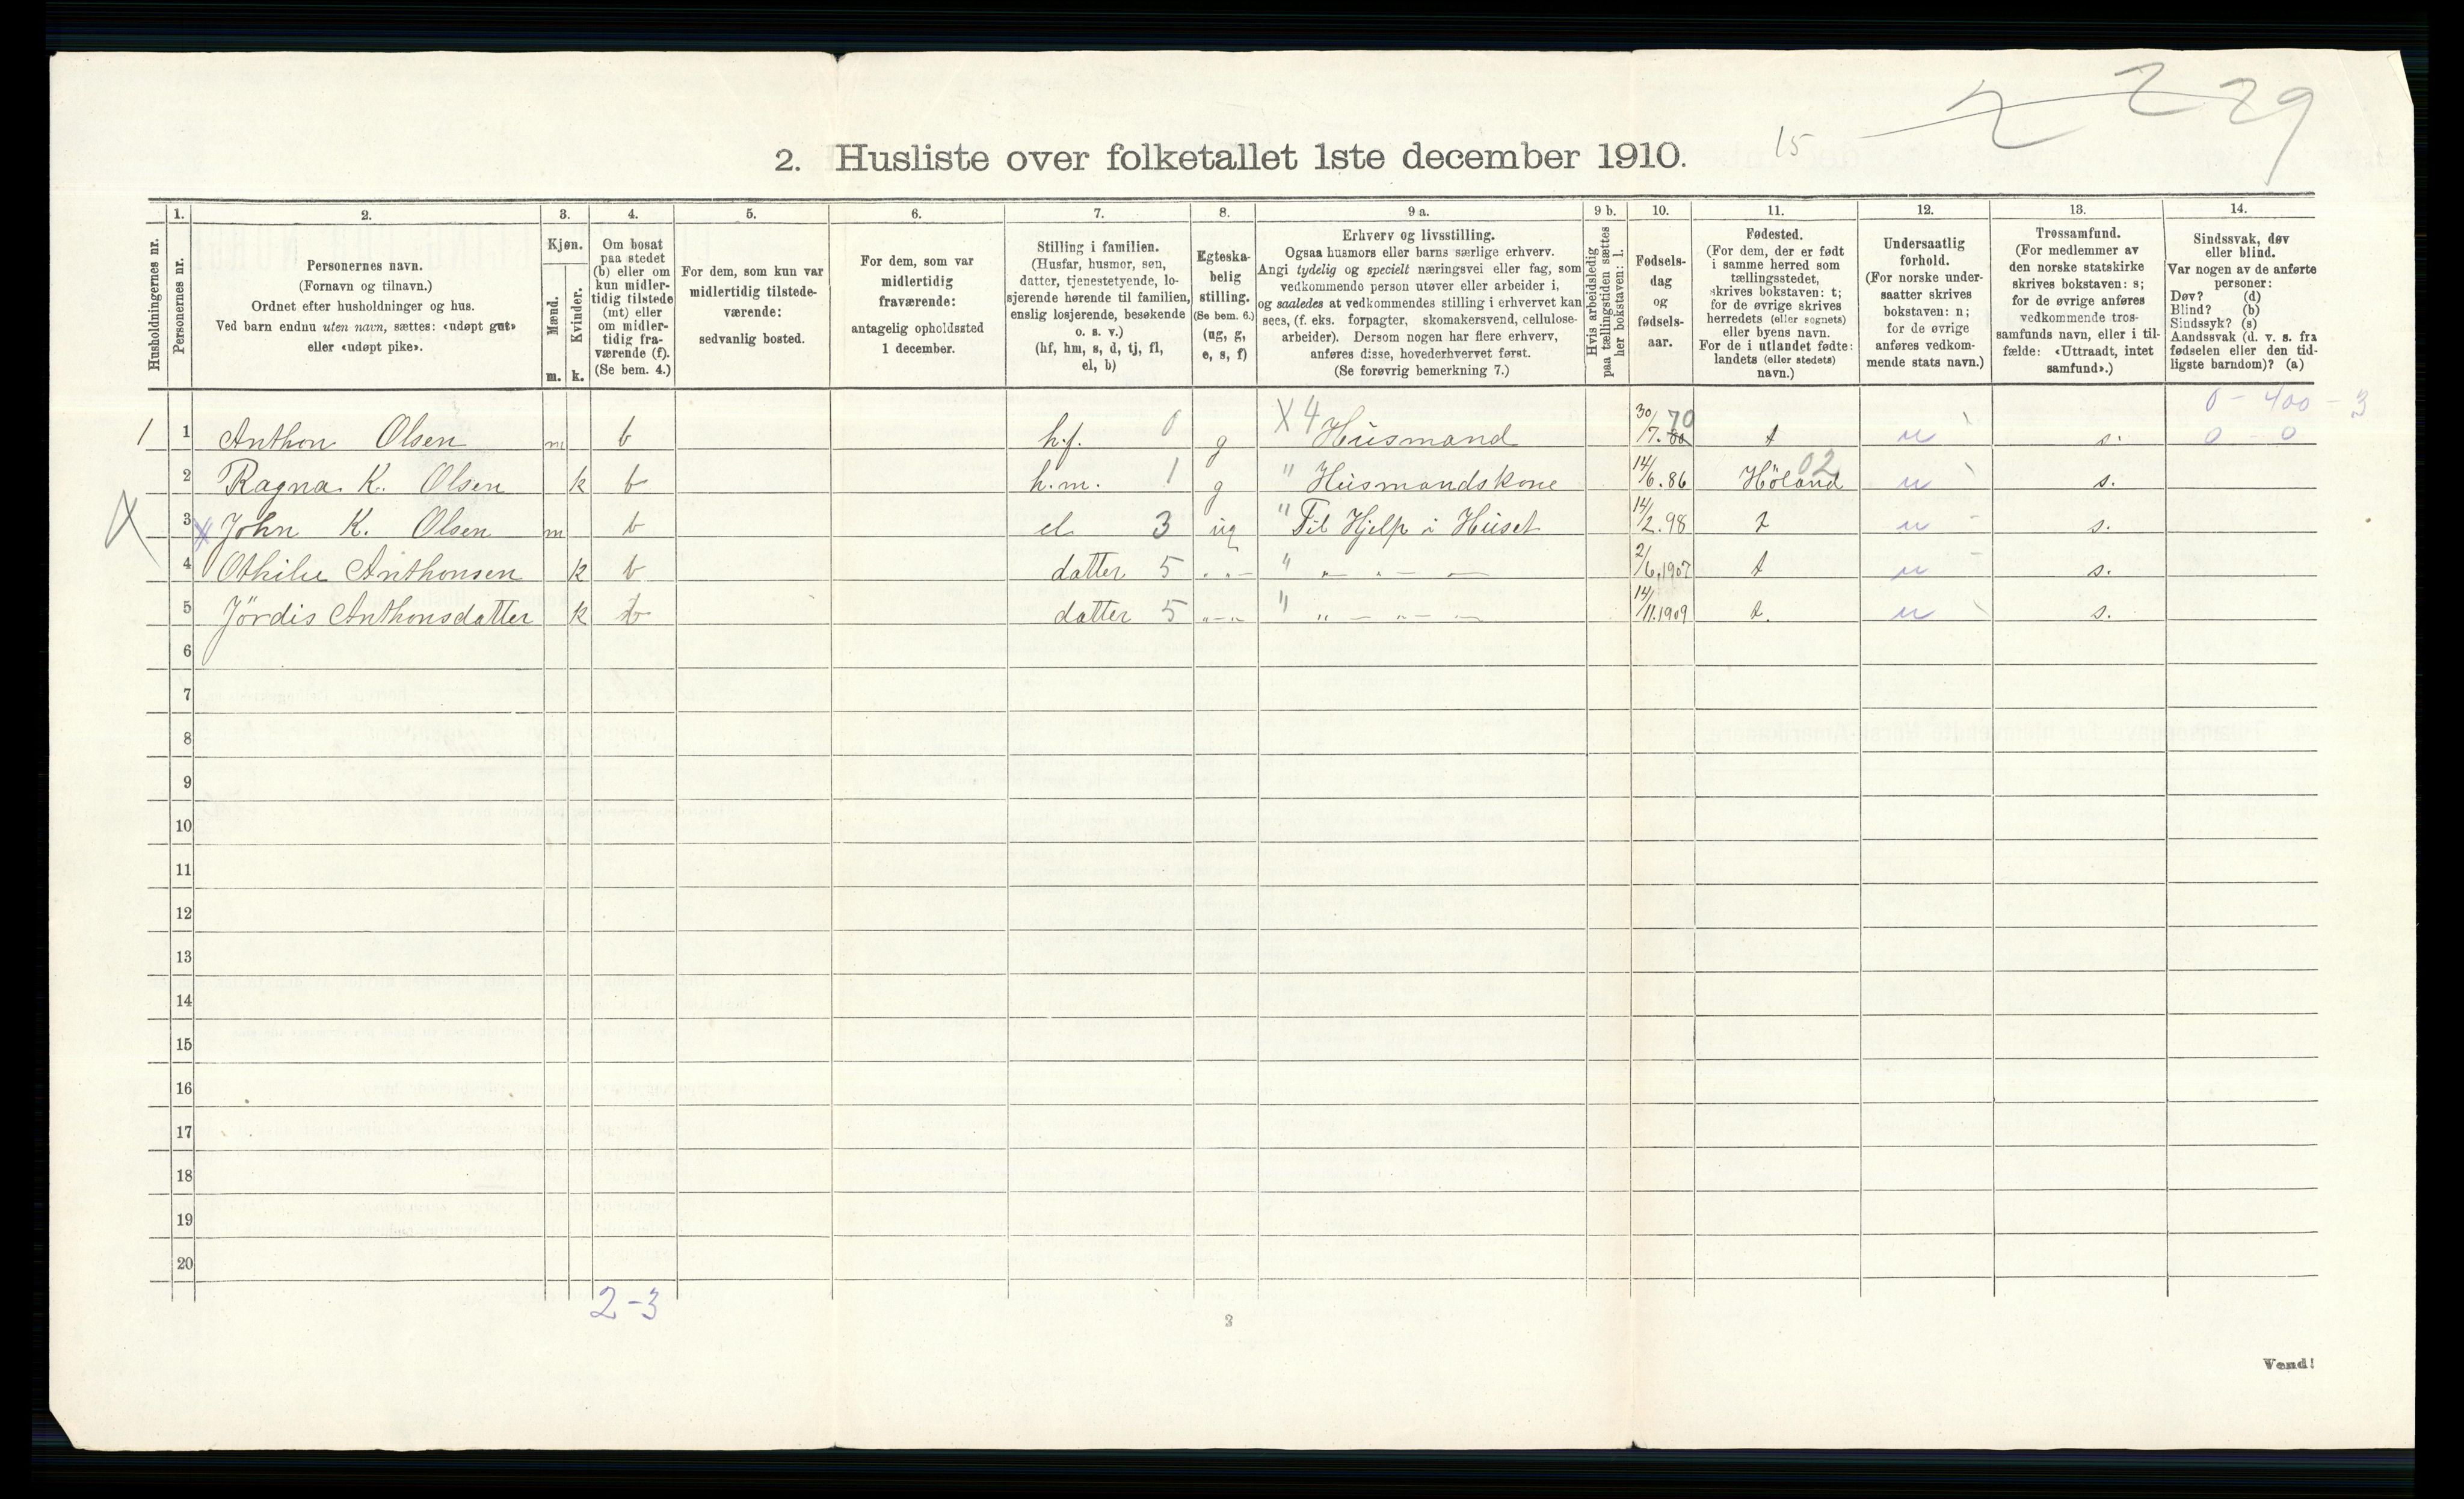 2 2 29
15
2. Husliste over folketallet 1ste december 1910.
Husholdningernes nr.
1. Personernes nr.
2. Personernes navn.
(Fornavn og tilnavn.)
Ordnet efter husholdninger og hus.
Ved barn endnu uten navn, sættes: «udøpt gut»
eller «udøpt pike».
3. Kjøn.
Mænd. m.
Kvinder. k.
4. Om bosat
paa stedet
(b) eller om
kun midler-
tidig tilstede
(mt) eller
om midler-
tidig fra-
værende (f).
(Se bem. 4.)
5. For dem, som kun var
midlertidig tilstede-
værende:
sedvanlig bosted.
6. For dem, som var
midlertidig
fraværende:
antagelig opholdssted
1 december.
7. Stilling i familien.
(Husfar, husmor, søn,
datter, tjenestetyende, lo-
sjerende hørende til familien,
enslig losjerende, besøkende
o. s. v.)
(hf, hm, s, d, tj, fl,
el, b)
8. Egteska-
belig
stilling.
(Se bem. 6.)
(ug, g,
e, s, f)
9 a. Erhverv og livsstilling.
Ogsaa husmors eller barns særlige erhverv.
Angi tydelig og specielt næringsvei eller fag, som
vedkommende person utøver eller arbeider i,
og saaledes at vedkommendes stilling i erhvervet kan
sees, (f. eks. forpagter, skomakersvend, cellulose-
arbeider). Dersom nogen har flere erhverv,
anføres disse, hovederhvervet først.
(Se forøvrig bemerkning 7.)
9 b. Hvis arbeidsledig
paa tællingstiden sættes
her bokstaven: l.
10. Fødsels-
dag
og
fødsels-
aar.
11. Fødested.
(For dem, der er født
i samme herred som
tællingsstedet,
skrives bokstaven: t;
for de øvrige skrives
herredets (eller sognets)
eller byens navn.
For de i utlandet fødte:
landets (eller stedets)
navn.)
12. Undersaatlig
forhold.
(For norske under-
saatter skrives
bokstaven: n;
for de øvrige
anføres vedkom-
mende stats navn.)
13. Trossamfund.
(For medlemmer av
den norske statskirke
skrives bokstaven: s;
for de øvrige anføres
vedkommende tros-
samfunds navn, eller i til-
fælde: «Uttraadt, intet
samfund».)
14. Sindssvak, døv
eller blind.
Var nogen av de anførte
personer:
Døv? (d)
Blind? (b)
Sindssyk? (s)
Aandssvak (d. v. s. fra
fødselen eller den tid-
ligste barndom)? (a)
0 - 400 - 3
1 1 Anthon Olsen m b h.f. 0 g X 4 Husmand 30/7. 70 t n s. 0 - 0
2 Ragna K. Olsen k b h.m. 1 g " Husmandskone 14/6.86 Höland 02 n s.
X 3 John K. Olsen m b el 3 ug " Til Hjelp i Huset 14/2.98 t n s.
4 Othilie Anthonsen k b datter 5 " - " " - " - 2/6.1907 t n s.
5 Jördis Anthonsdatter k b datter 5 " - " " - " - 14/11.1909 t. n s.
6
7
8
9
10
11
12
13
14
15
16
17
18
19
20
2-3
3
Vend!